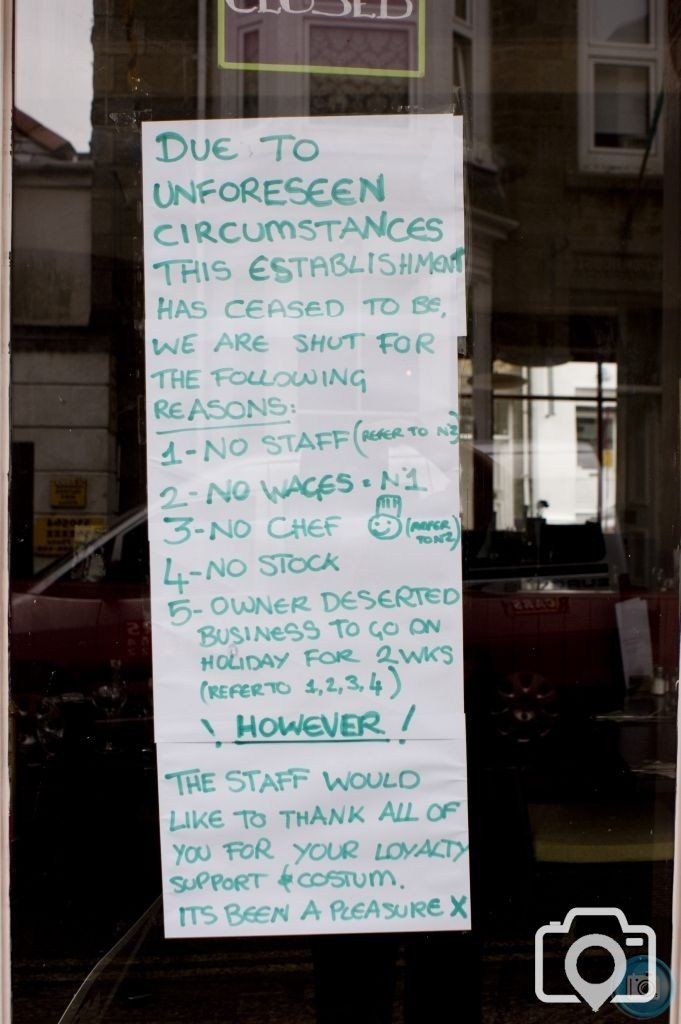 CLOSED
DUE TO
UNFORESEEN
CIRCUMSTANCES
THIS ESTABLISHMENT
HAS CEASED TO BE,
WE ARE SHUT FOR
THE FOLLOWING
REASONS:
1-NO STAFF (REFER TO N2)
2-NO WAGES = N1
3-NO CHEF (REFER TO N2)
4-NO STOCK
5-OWNER DESERTED
BUSINESS TO GO ON
HOLIDAY FOR 2WKS
(REFER TO 1,2,3,4)
! HOWEVER !
THE STAFF WOULD
LIKE TO THANK ALL OF
YOU FOR YOUR LOYALTY
SUPPORT & COSTUM.
ITS BEEN A PLEASURE X